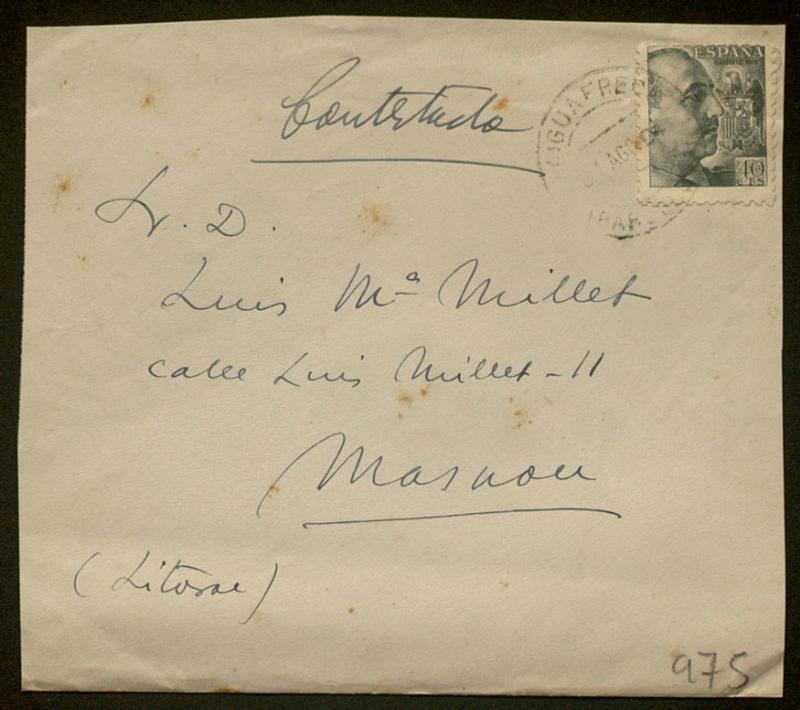 Contestada
AIGUAFRE
AGO
BAR
ESPAÑA
CORREOS
40
CTS
Sr. D.
Luis Mª Millet
calle Luis Millet - 11
Masnou
(Litoral)
975